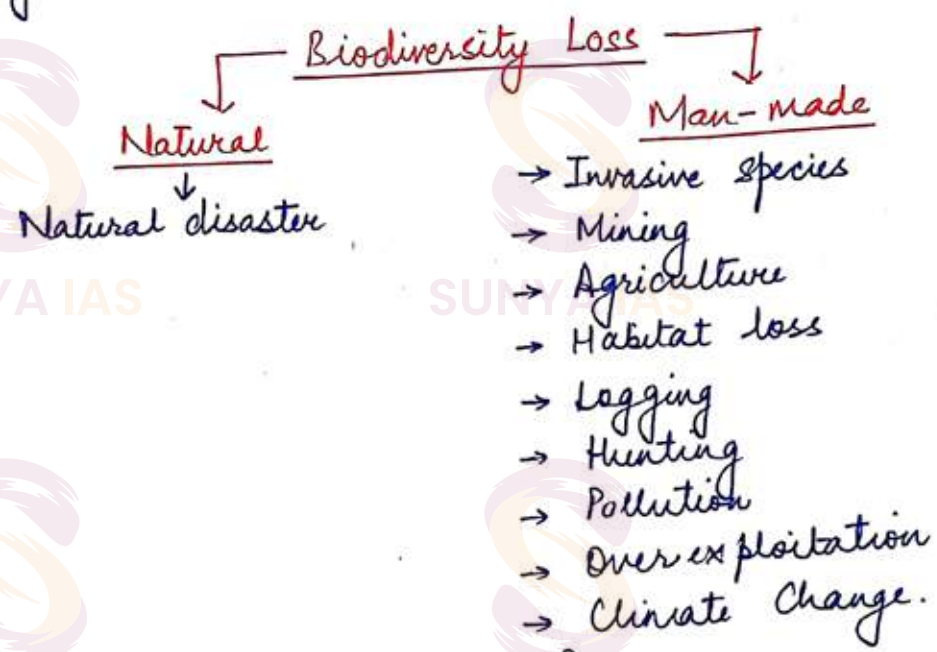 Biodiversity Loss
Natural
Man-made
Natural disaster
→ Invasive species
→ Mining
→ Agriculture
→ Habitat loss
→ Logging
→ Hunting
→ Pollution
→ Over exploitation
→ Climate Change.
YA IAS
SUNYA IAS